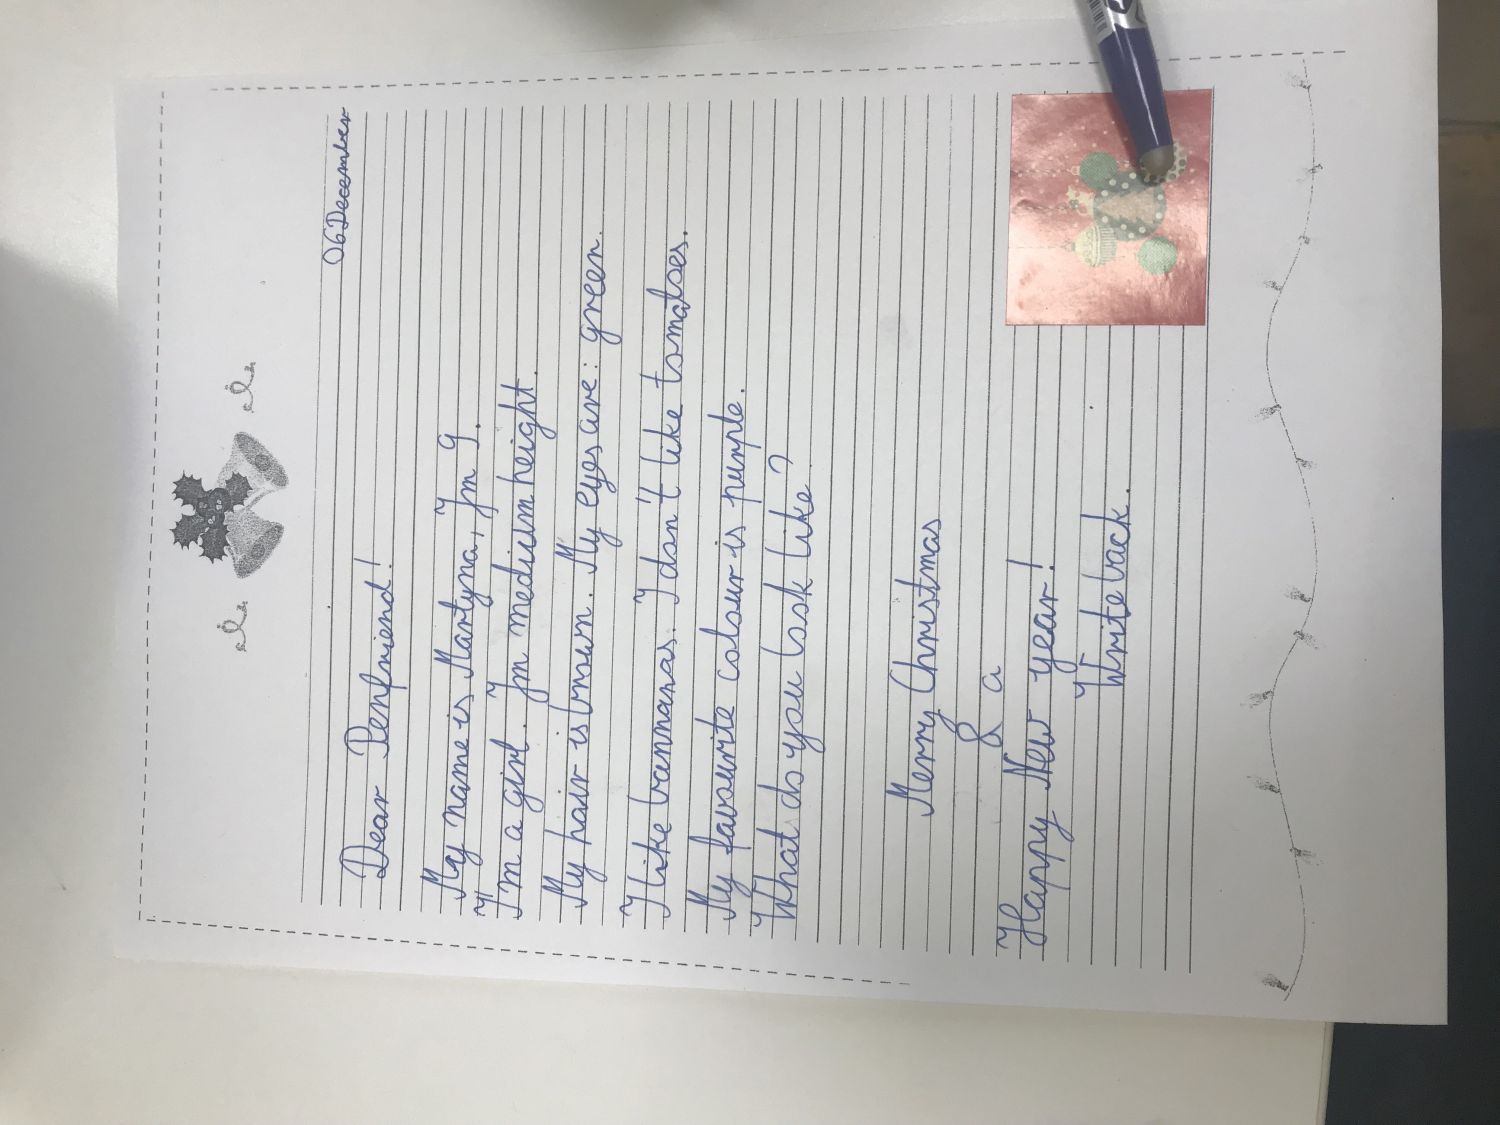 06 December
Dear Penfriend!
My name is Martyna, I'm 9.
I'm a girl. I'm medium height.
My hair is brown. My eyes are: green.
I like bannanas. I don't like tomatoes.
My favourite colour is purple.
What do you look like?
Merry Christmas
& a
Happy New year!
Write back.